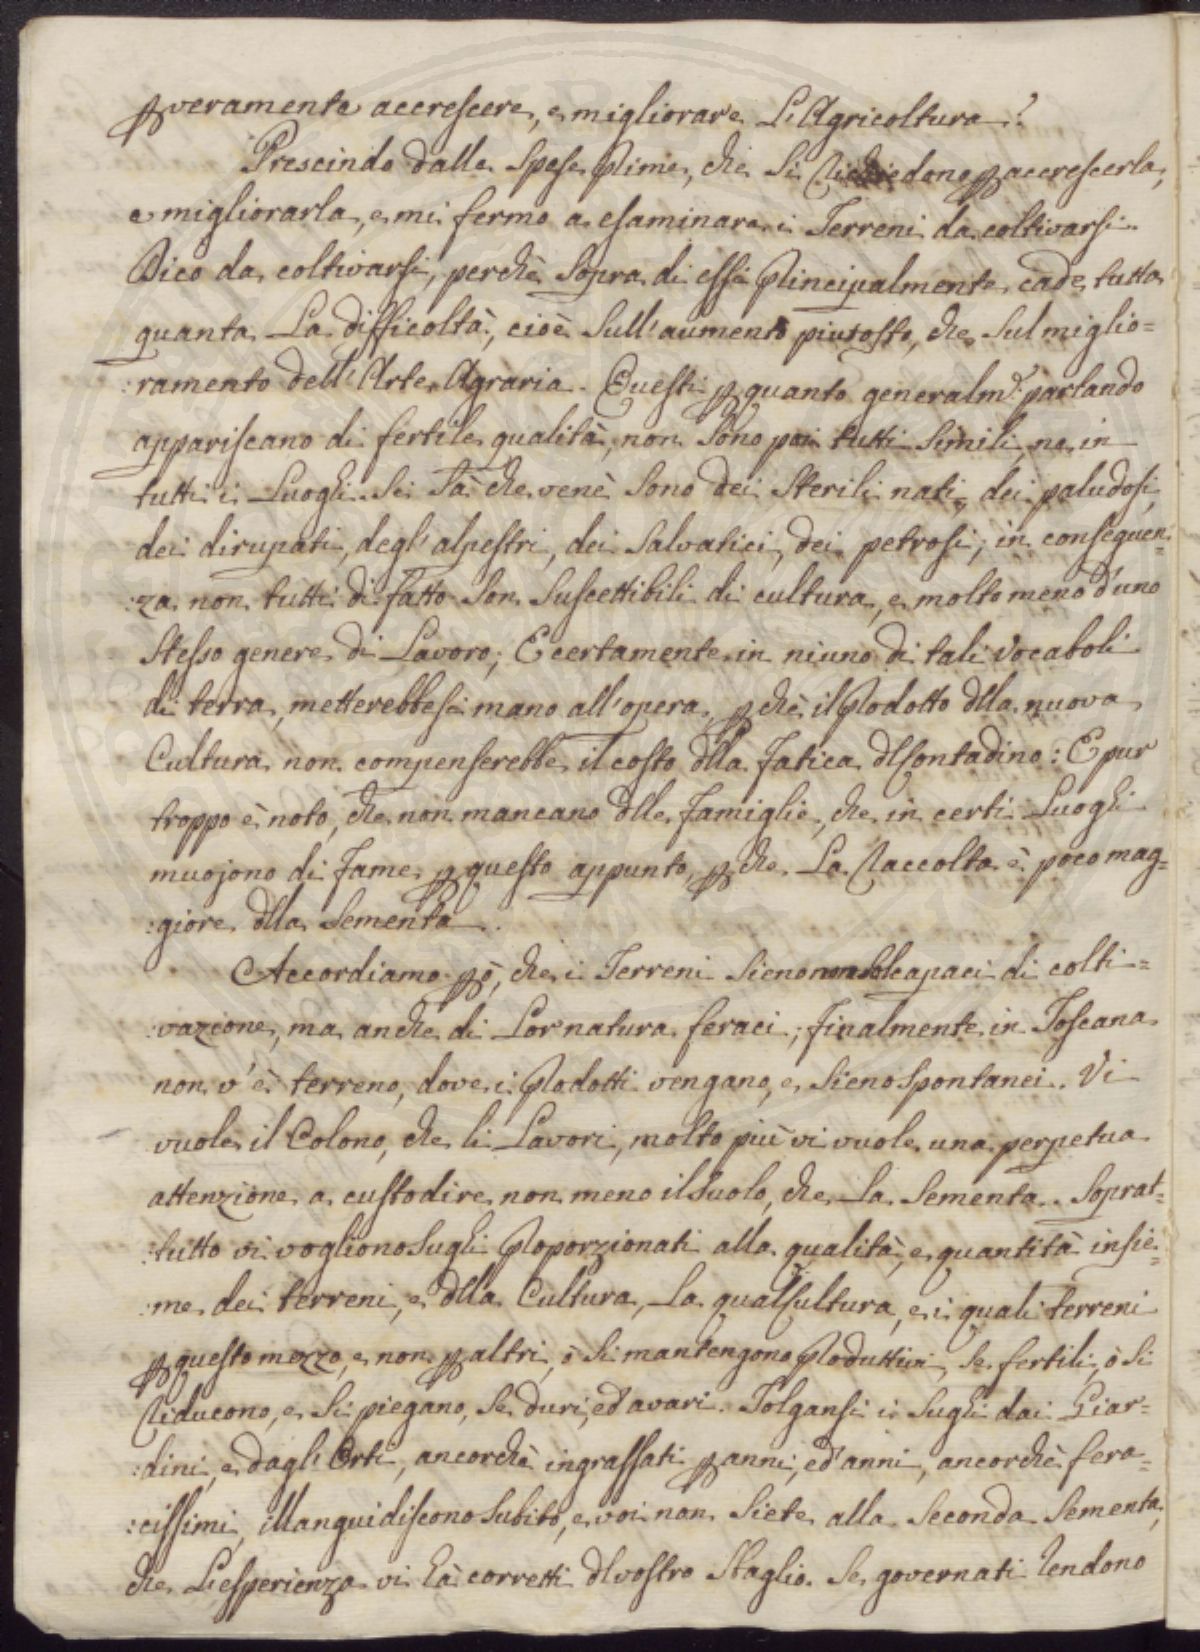 p veramente accrescere, e migliorare L'Agricoltura?
Prescindo dalle Spese Prime, che Si richiedono p accrescerla,
e migliorarla, e mi fermo a esaminare i Terreni da coltivarsi.
Dico da coltivarsi, perchè Sopra di essi Principalmente cade tutta
quanta La difficoltà, cioè Sull'aumento piutosto, che Sul miglio=
:ramento dell'Arte Agraria. Questi p quanto generalm.e parlando
appariscano di fertile qualità, non Sono poi tutti Simili, ne in
tutti i Luoghi. Si Sà che venè Sono dei Sterili nati, dei paludosi,
dei dirupati, degl'alpestri, dei Salvatici, dei petrosi; in conseguen=
:za non tutti di fatto Son Suscettibili di cultura, e molto meno d'uno
Stesso genere di Lavoro; E certamente in niuno di tali Vocaboli
di terra, metterebbesi mano all'opera, pchè il Prodotto dlla nuova
Cultura non compenserebbe il costo dlla Fatica dl Contadino: E pur
troppo è noto, che non mancano dlle Famiglie, che in certi Luoghi
muojono di Fame p questo appunto, pche La Raccolta è poco mag=
:giore dlla Sementa.
Accordiamo pò, che i Terreni Sieno non Sol capaci di colti=
:vazione, ma anche di Lor natura feraci; finalmente in Toscana
non v'è terreno, dove i Prodotti vengano, e Sieno Spontanei. Vi
vuole il Colono, che li Lavori, molto più vi vuole una perpetua
attenzione a custodire non meno il Suolo, che La Sementa. Soprat=
:tutto vi vogliono Sughi Proporzionati alla qualità, e quantità insie=
:me dei terreni, e dlla Cultura, La qual Cultura, e i quali terreni
p questo mezzo, e non p altri, ò Si mantengono Produttivi, Se fertili, ò Si
Riducono, e Si piegano, Se duri, ed avari. Tolgansi i Sughi dai Giar=
:dini, e dagl'Orti, ancorchè ingrassati p anni, ed anni, ancorchè fera=
:cissimi, illanguidiscono Subito, e voi non Siete alla Seconda Sementa,
che L'esperienza vi hà corretti dl vostro Sbaglio. Se governati Rendono